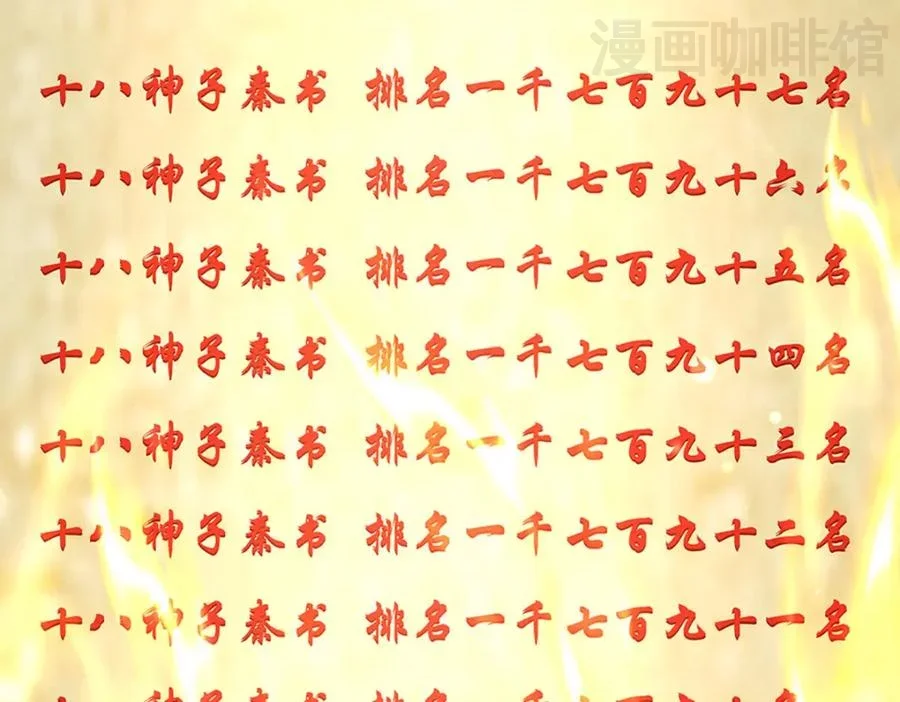 漫画咖啡馆
十八神子秦书 排名一千七百九十七名
十八神子秦书 排名一千七百九十六名
十八神子秦书 排名一千七百九十五名
十八神子秦书 排名一千七百九十四名
十八神子秦书 排名一千七百九十三名
十八神子秦书 排名一千七百九十二名
十八神子秦书 排名一千七百九十一名
十八神子秦书 排名一千七百九十名